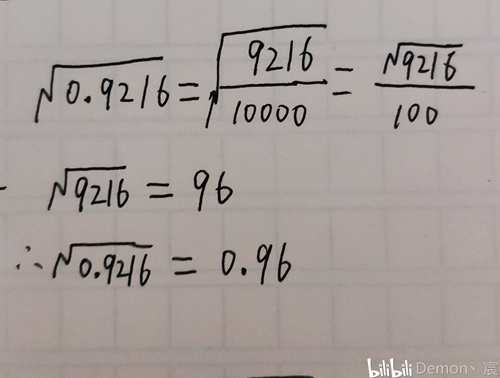 √0.9216 = √(9216/10000) = √9216/100
√9216 = 96
∴√0.9216 = 0.96
bilibili Demon丶宸